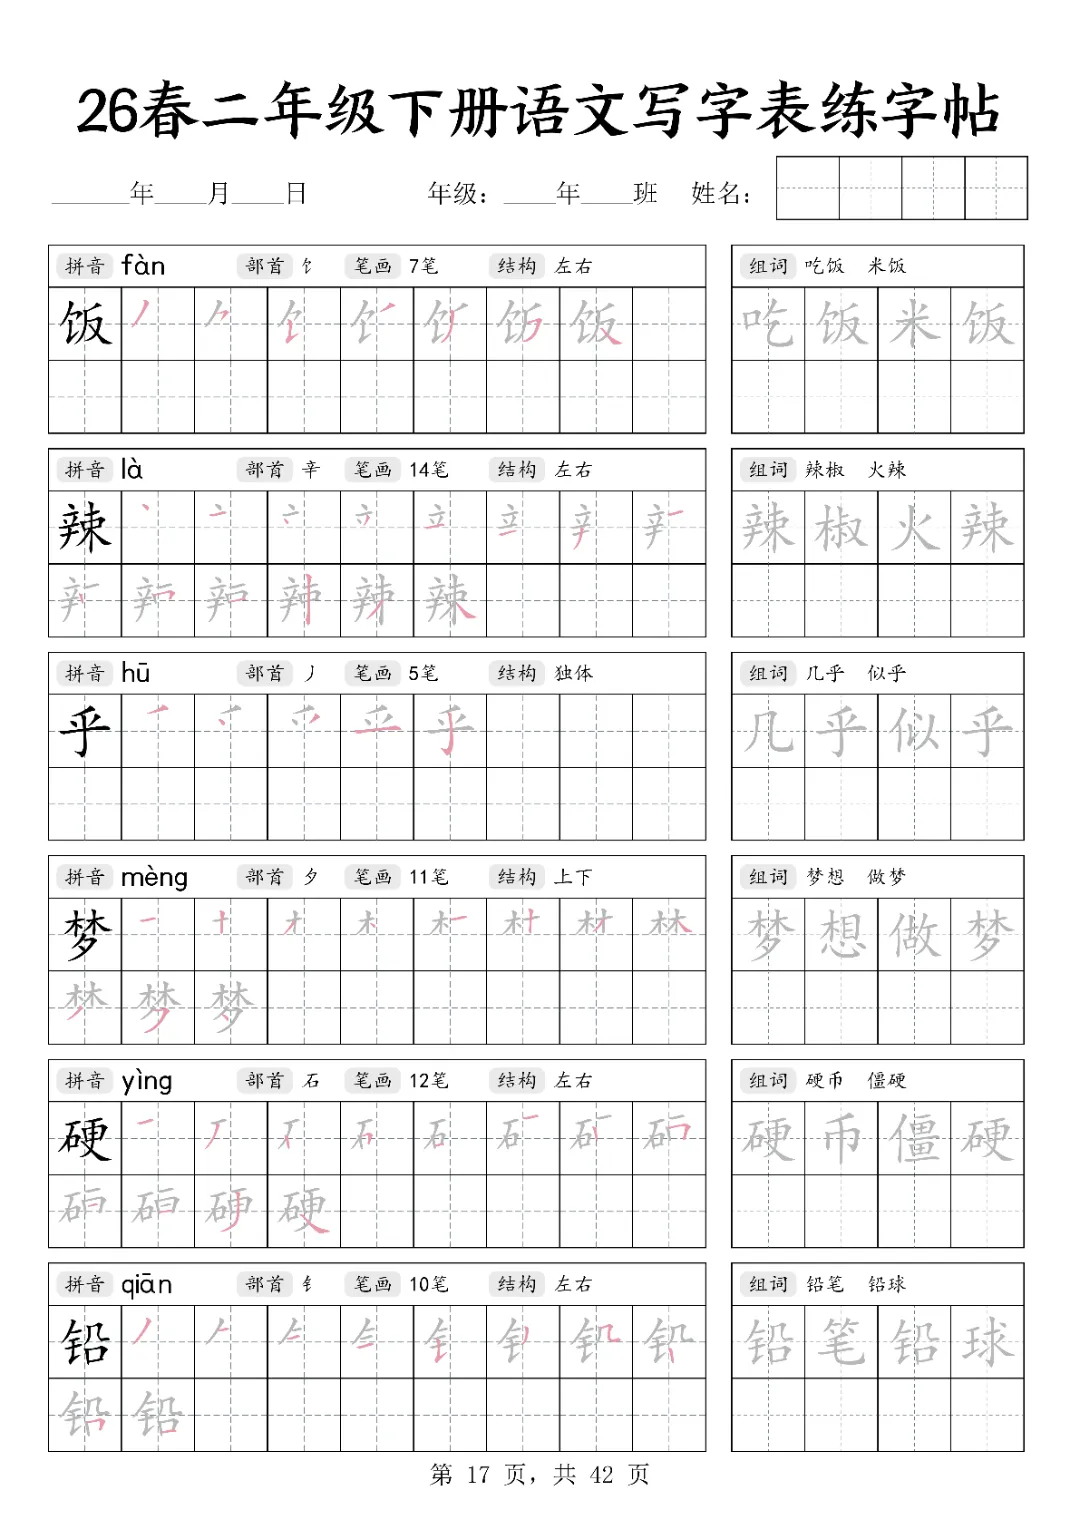 26春二年级下册语文写字表练字帖
______年____月____日 年级：____年____班 姓名：
拼音 fàn 部首 饣 笔画 7笔 结构 左右 组词 吃饭 米饭
饭 吃饭米饭
拼音 là 部首 辛 笔画 14笔 结构 左右 组词 辣椒 火辣
辣 辣椒火辣
拼音 hū 部首 丿 笔画 5笔 结构 独体 组词 几乎 似乎
乎 几乎似乎
拼音 mèng 部首 夕 笔画 11笔 结构 上下 组词 梦想 做梦
梦 梦想做梦
拼音 yìng 部首 石 笔画 12笔 结构 左右 组词 硬币 僵硬
硬 硬币僵硬
拼音 qiān 部首 钅 笔画 10笔 结构 左右 组词 铅笔 铅球
铅 铅笔铅球
第 17 页，共 42 页